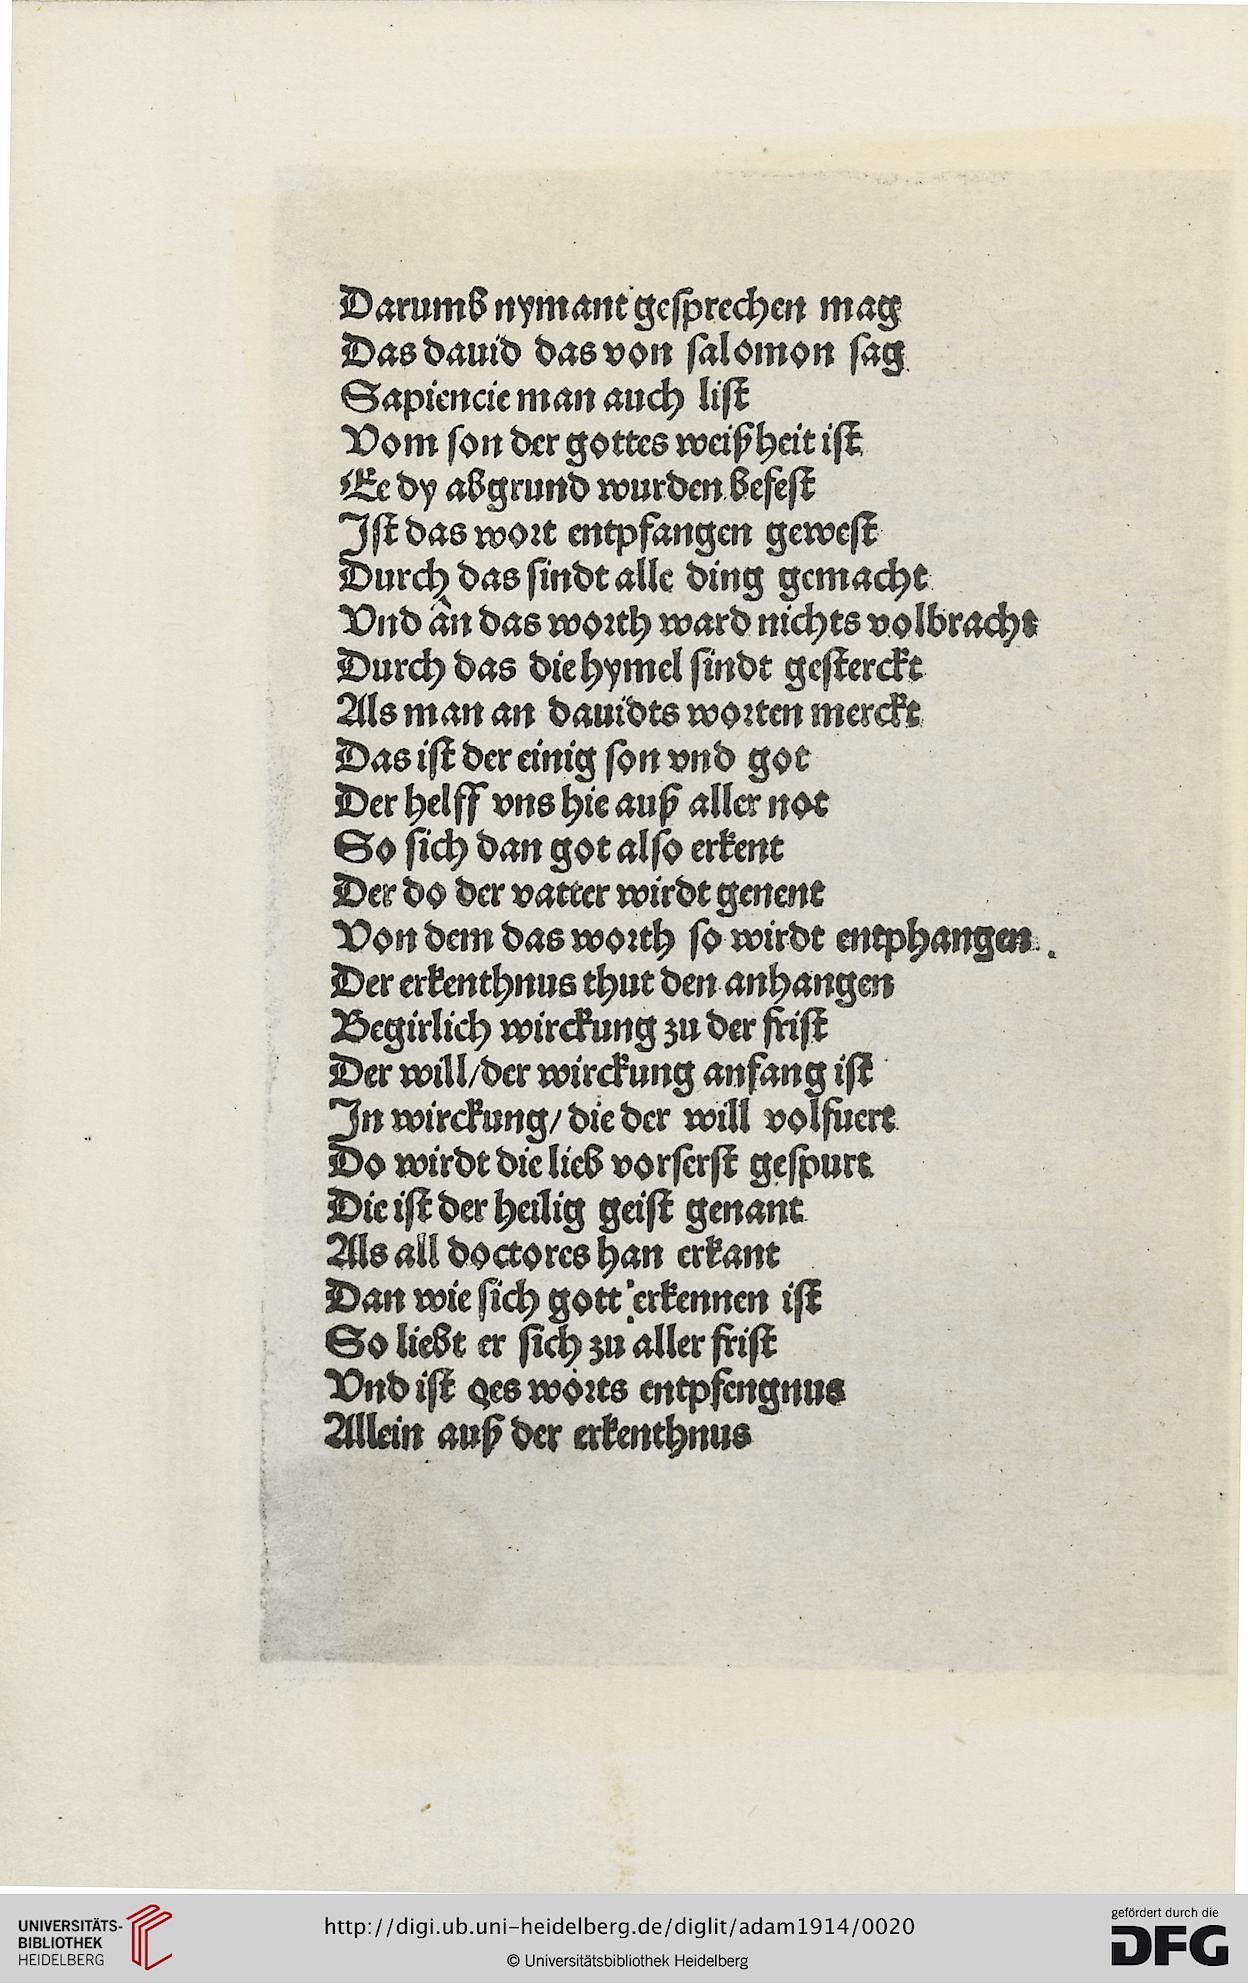 Darumb nymant gesprechen mag
Das dauid das von salomon sag
Sapiencie man auch list
Vom son der gottes weißheit ist
Ee dy abgrund wurden befest
Ist das wort entpfangen gewest
Durch das sindt alle ding gemacht
Vnd ân das worth ward nichts volbracht
Durch das die hymel sindt gesterckt
Als man an dauidts worten merckt
Das ist der einig son vnd got
Der helff vns hie auß aller not
So sich dan got also erkent
Der do der vatter wirdt genent
Von dem das worth so wirdt entphangen.
Der erkenthnus thut den anhangen
Begirlich wirckung zu der frist
Der will/der wirckung anfang ist
In wirckung/ die der will volfuert
Do wirdt die lieb vorserst gespurt
Die ist der heilig geist genant
Als all doctores han erkant
Dan wie sich gott erkennen ist
So liebt er sich zu aller frist
Vnd ist des worts entpfengnus
Allein auß der erkenthnus
UNIVERSITÄTS-
BIBLIOTHEK
HEIDELBERG
http://digi.ub.uni-heidelberg.de/diglit/adam1914/0020
© Universitätsbibliothek Heidelberg
gefördert durch die
DFG